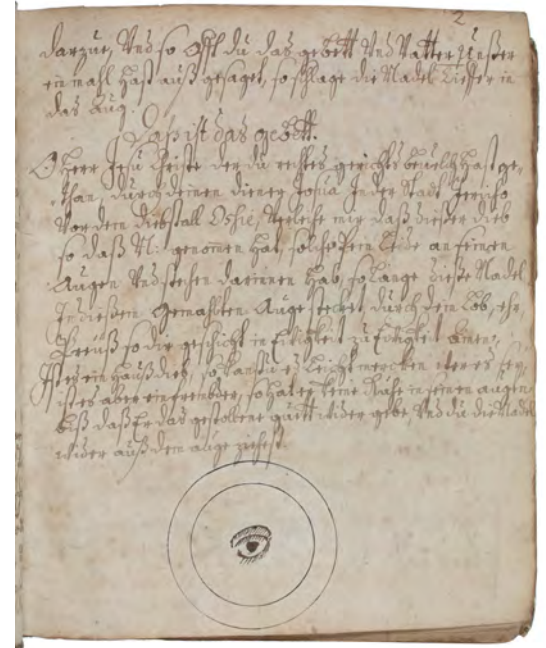 2
darzue, Und so Offt du das gebett Und Vatter Unßer
ein mahl hast auß gesaget, so schlage die Nadel tieffer in
das Aug.
Daß ist das gebett.
O Herr Jesu Christe der du rechtes gerichts bevelch hast ge-
than, durch deinen diener Josua In der Stadt Jericho
Vor dem diebstall, Verleihe mir daß dießer dieb
so daß N: genomen hat, solche Pein leide an seinen
Augen Und stechen darinnen hab, so lange dieße Nadel
In dießem Gemahlten Auge stecket, durch dein Lob, ehr,
Preuß so dir geschicht in Ewigkeit zu Ewigkeit Amen.
Ist es ein haußdieb, so kanstu es leicht mercken wer es sey,
ist es aber ein frembder, so hat er keine Ruhe in seinen augen
biß daß Er das gestollene gutt wider gebe, Und du die Nadel
wider auß dem auge ziehest.